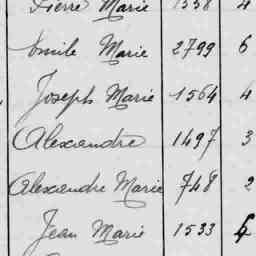 Pierre Marie 1558 4
Emile Marie 2799 6
Joseph Marie 1564 4
Alexandre 1497 3
Alexandre Marie 748 2
Jean Marie 1533 4